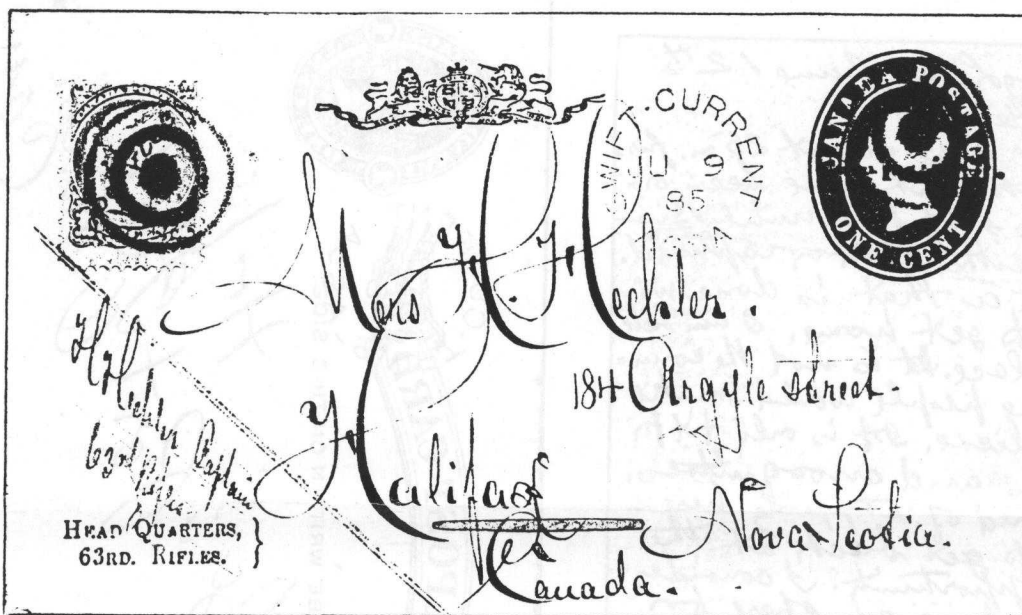 SWIFT. CURRENT
JU 9
85
ASSA
CANADA POSTAGE
ONE CENT
Mrs H. H. Hechler.
184 Argyle Street.
Halifax
Nova Scotia.
Canada.
Hechler Captain
63rd Rifles
HEAD QUARTERS,
63RD. RIFLES.